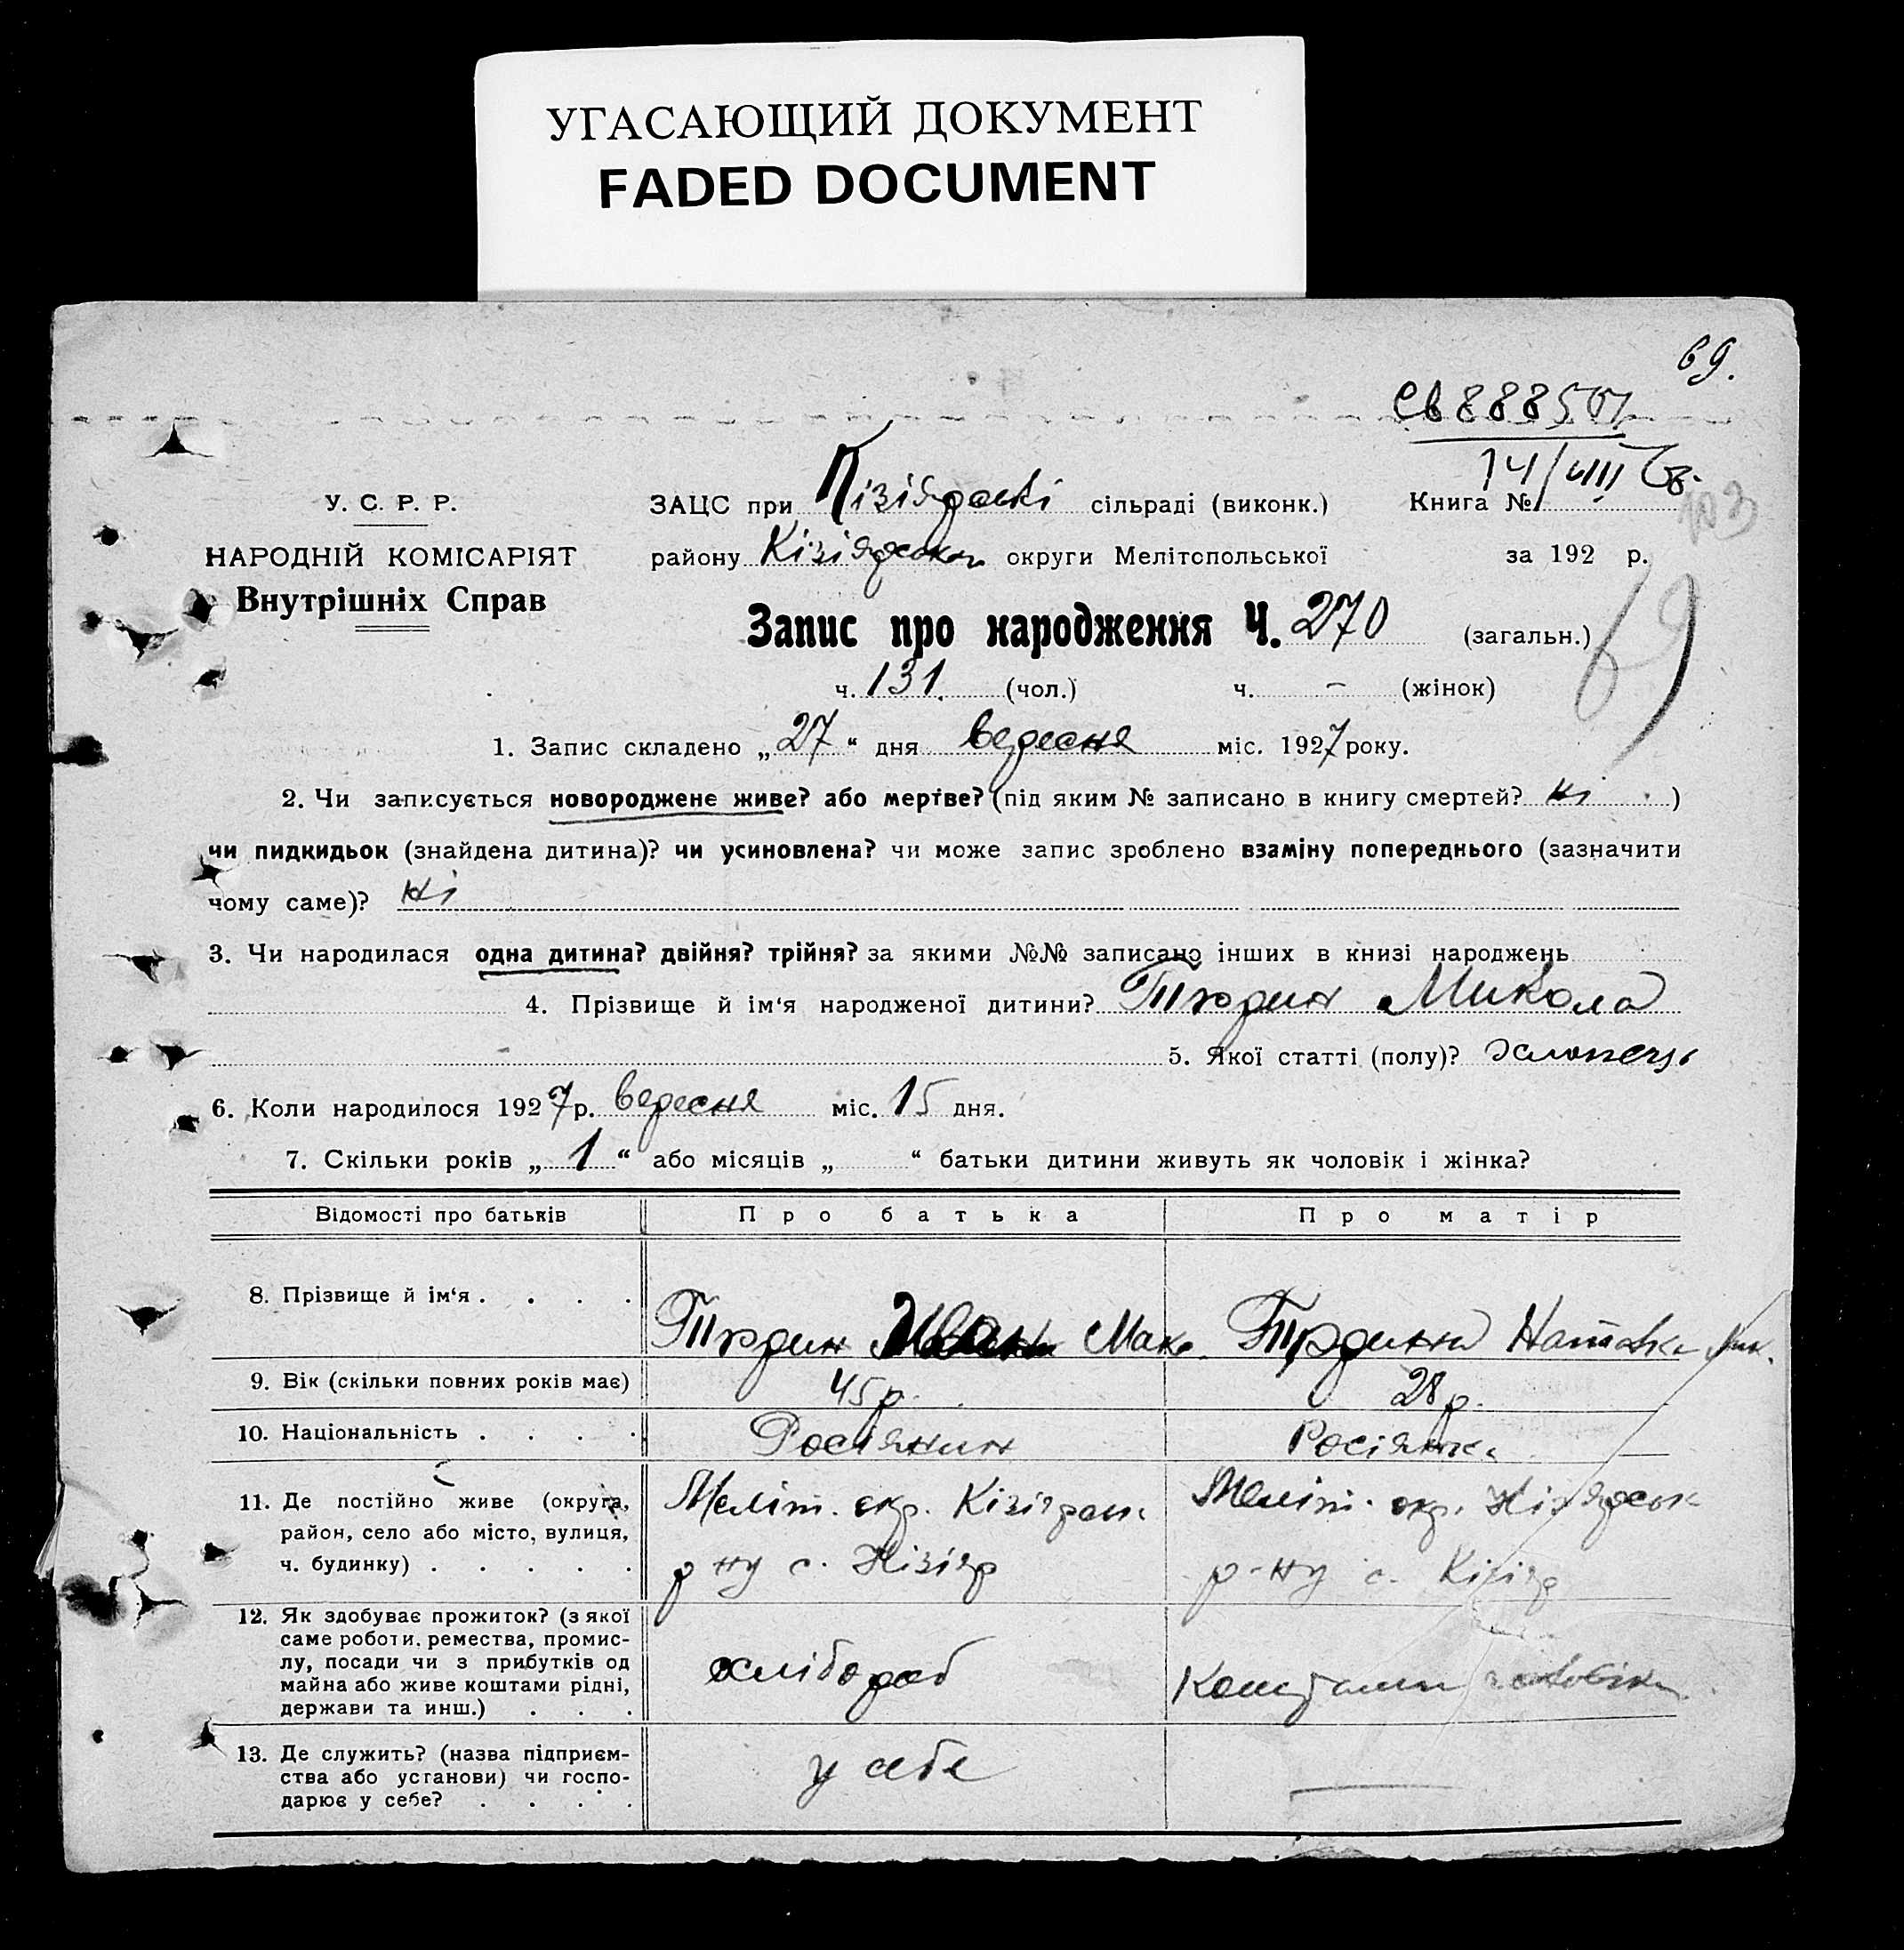 УГАСАЮЩИЙ ДОКУМЕНТ
FADED DOCUMENT
69.
СВ 8885
14/VIII
У. С. Р. Р.
ЗАЦС при Кізіярські сільраді (виконк.) Книга №
НАРОДНІЙ КОМІСАРІЯТ
району Кізіярськ округи Мелітопольської за 192 р.
103
Внутрішніх Справ
Запис про народження Ч. 270 (загальн.)
69
ч. 131. (чол.) ч. – (жінок)
1. Запис складено „27“ дня вересня міс. 1927 року.
2. Чи записується новороджене живе? або мертве? (під яким № записано в книгу смертей? ні )
чи пидкидьок (знайдена дитина)? чи усиновлена? чи може запис зроблено взаміну попереднього (зазначити
чому саме)? ні
3. Чи народилася одна дитина? двійня? трійня? за якими №№ записано інших в книзі народжень
4. Прізвище й ім‘я народженої дитини? Микола
5. Якої статті (полу)? Хлопець
6. Коли народилося 1927 р. вересня міс. 15 дня.
7. Скільки років „1“ або місяців „ “ батьки дитини живуть як чоловік і жінка?
Відомості про батьків Про батька Про матір
8. Прізвище й ім‘я . . . . Иван Мак.
9. Вік (скільки повних років має) 45 р. 28 р.
10. Національність . . . . Росіянин Росіянка
11. Де постійно живе (округа, район, село або місто, вулиця, ч. будинку) . . . . .
Меліт. окр. Кізіярськ
р-ну с. Кізіяр
Меліт. окр. Кізіярськ
р-ну с. Кізіяр
12. Як здобуває прожиток? (з якої
саме роботи, ремества, промис-
лу, посади чи з прибутків од
майна або живе коштами рідні,
держави та инш.) . . .
хлібороб
Коштами чоловіка
13. Де служить? (назва підприєм-
ства або установи) чи госпо-
дарює у себе? . . . .
у себе